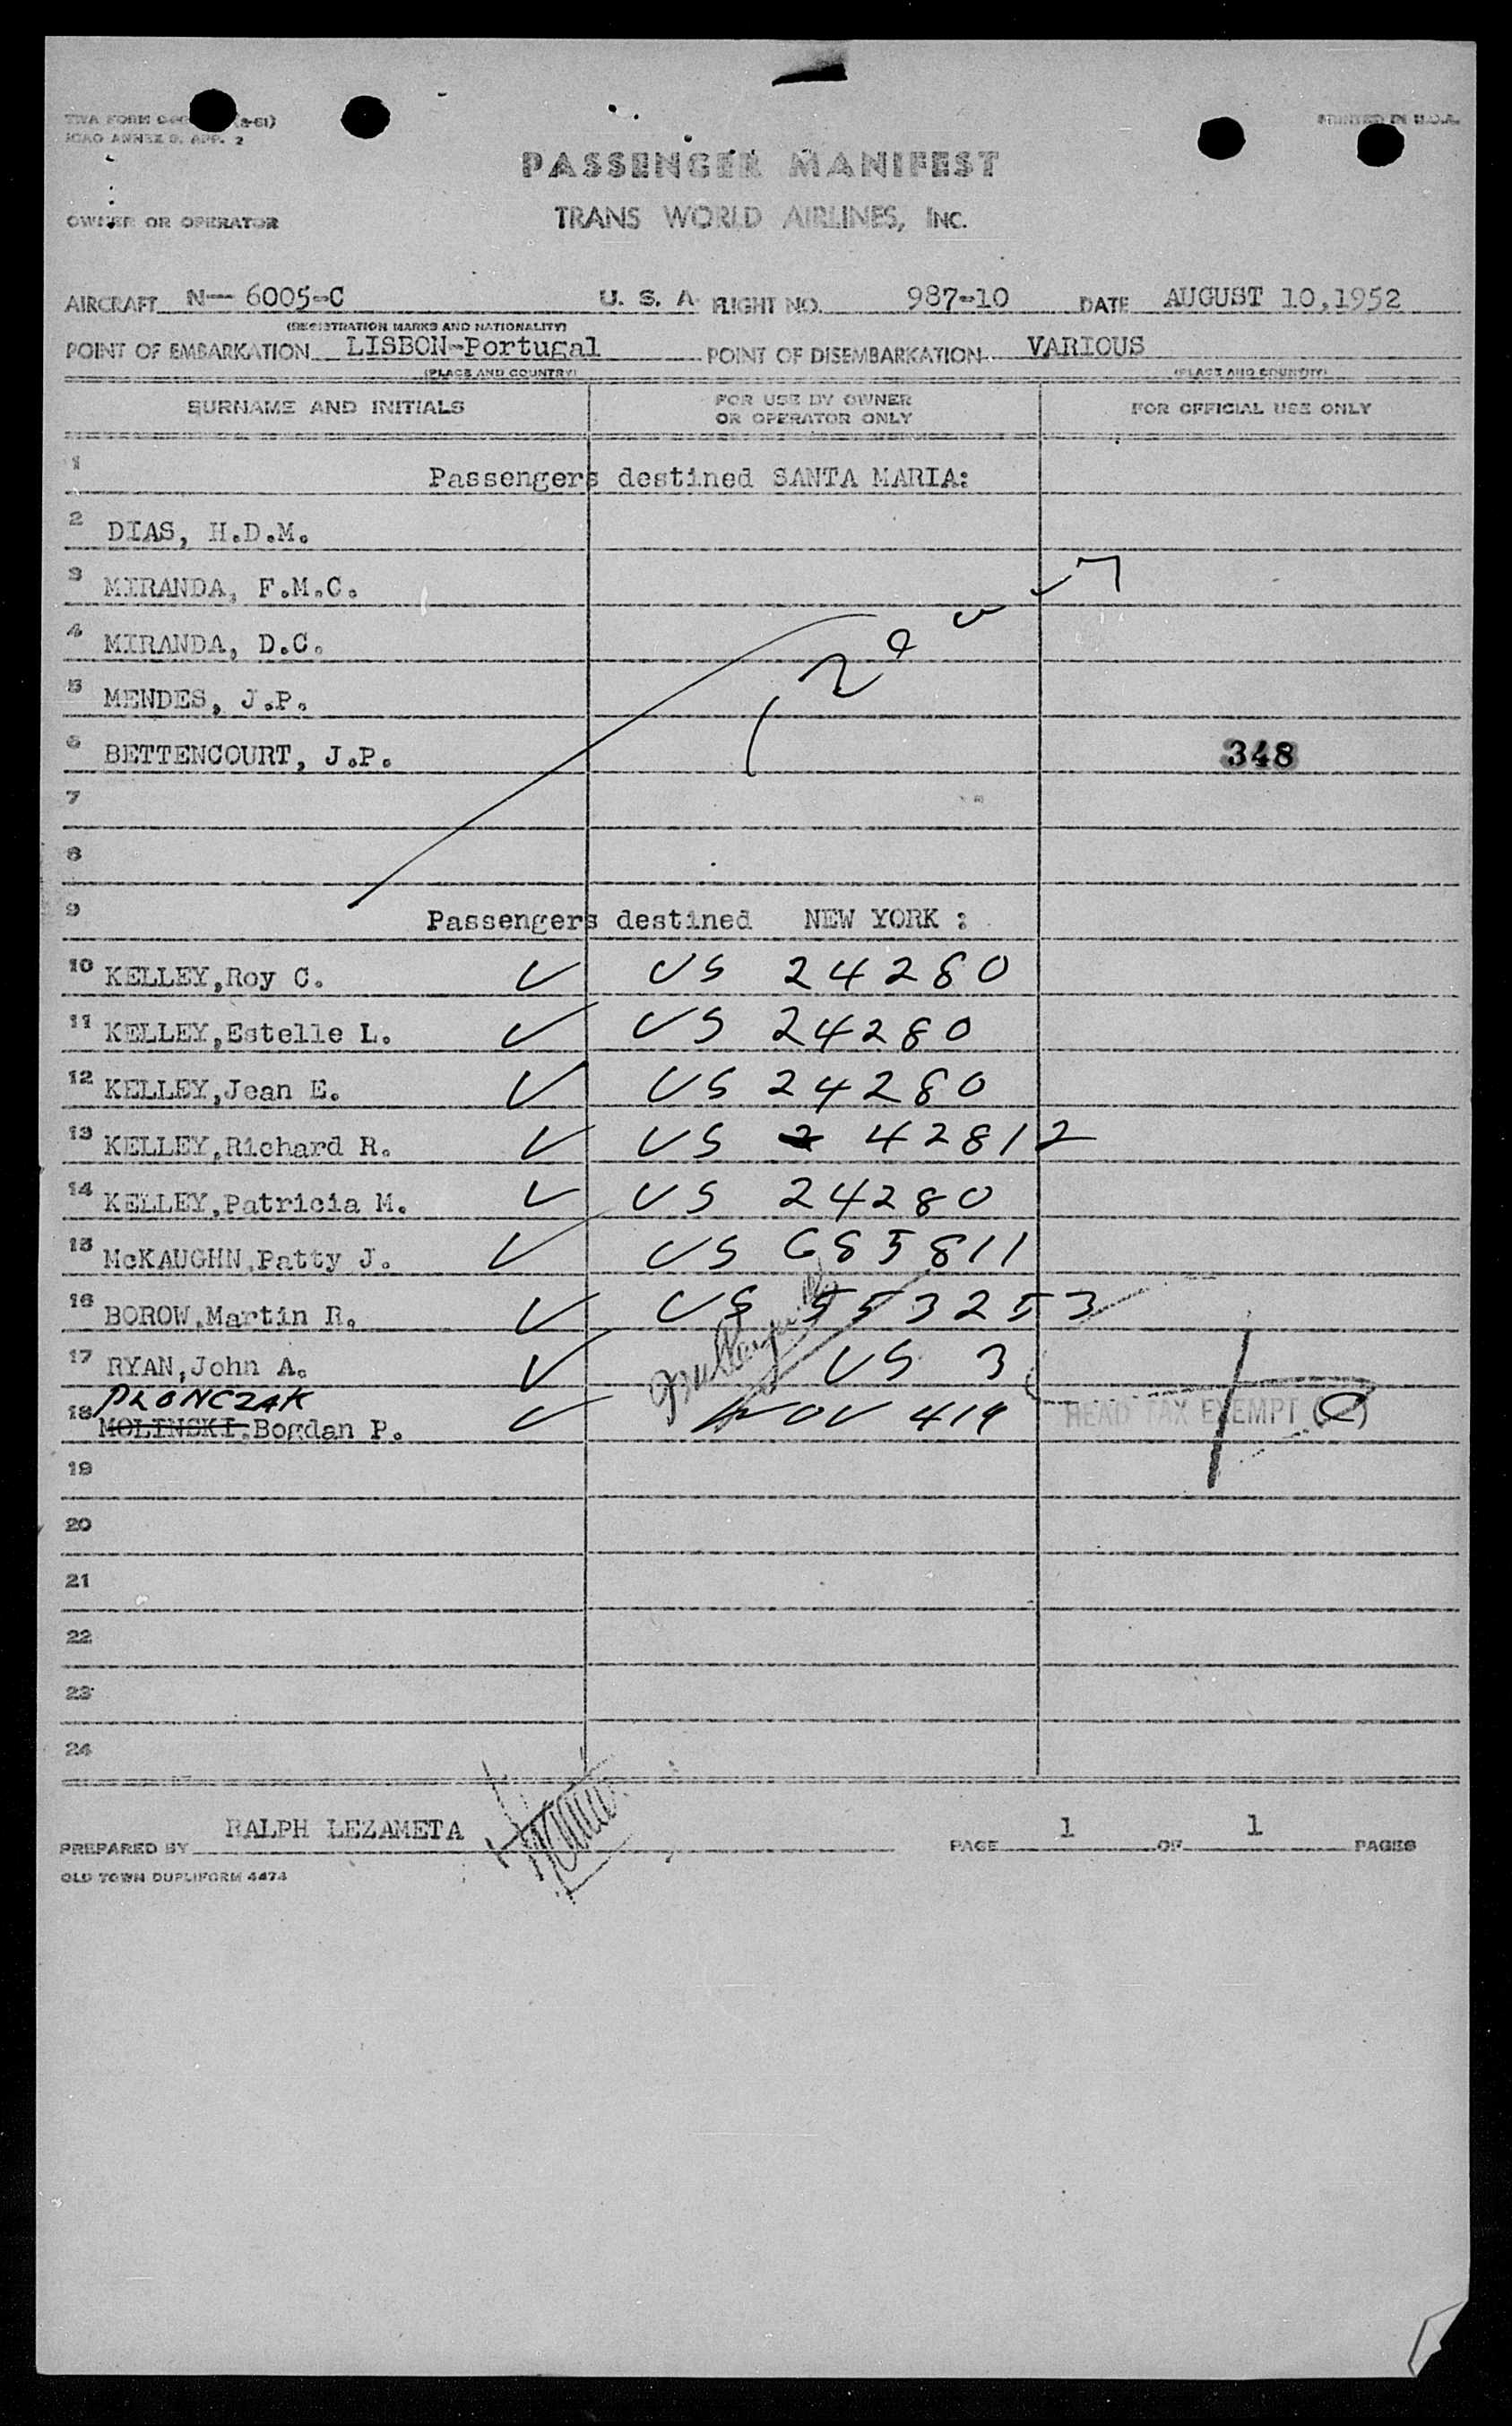 TWA FORM (8-51) PRINTED IN U.S.A.
ICAO ANNEX 9, APP. 2
PASSENGER MANIFEST
OWNER OR OPERATOR TRANS WORLD AIRLINES, INC.
AIRCRAFT N-6005-C U. S. A. FLIGHT NO. 987-10 DATE AUGUST 10,1952
(REGISTRATION MARKS AND NATIONALITY)
POINT OF EMBARKATION LISBON-Portugal POINT OF DISEMBARKATION VARIOUS
(PLACE AND COUNTRY) (PLACE AND COUNTRY)
SURNAME AND INITIALS FOR USE BY OWNER OR OPERATOR ONLY FOR OFFICIAL USE ONLY
1 Passengers destined SANTA MARIA:
2 DIAS, H.D.M.
3 MIRANDA, F.M.C.
4 MIRANDA, D.C.
5 MENDES, J.P.
6 BETTENCOURT, J.P. 348
7
8
9 Passengers destined NEW YORK :
10 KELLEY,Roy C. ✓ US 24280
11 KELLEY,Estelle L. ✓ US 24280
12 KELLEY,Jean E. ✓ US 24280
13 KELLEY,Richard R. ✓ US 2 42812
14 KELLEY,Patricia M. ✓ US 24280
15 McKAUGHN,Patty J. ✓ US 685811
16 BOROW,Martin R. ✓ US 553253
17 RYAN,John A. ✓ US 3
PLONCZAK
18 MOLINSKI,Bogdan P. ✓ OV 419 HEAD TAX EXEMPT (C)
19
20
21
22
23
24
PREPARED BY RALPH LEZAMETA PAGE 1 OF 1 PAGES
OLD TOWN DUPLIFORM 4474